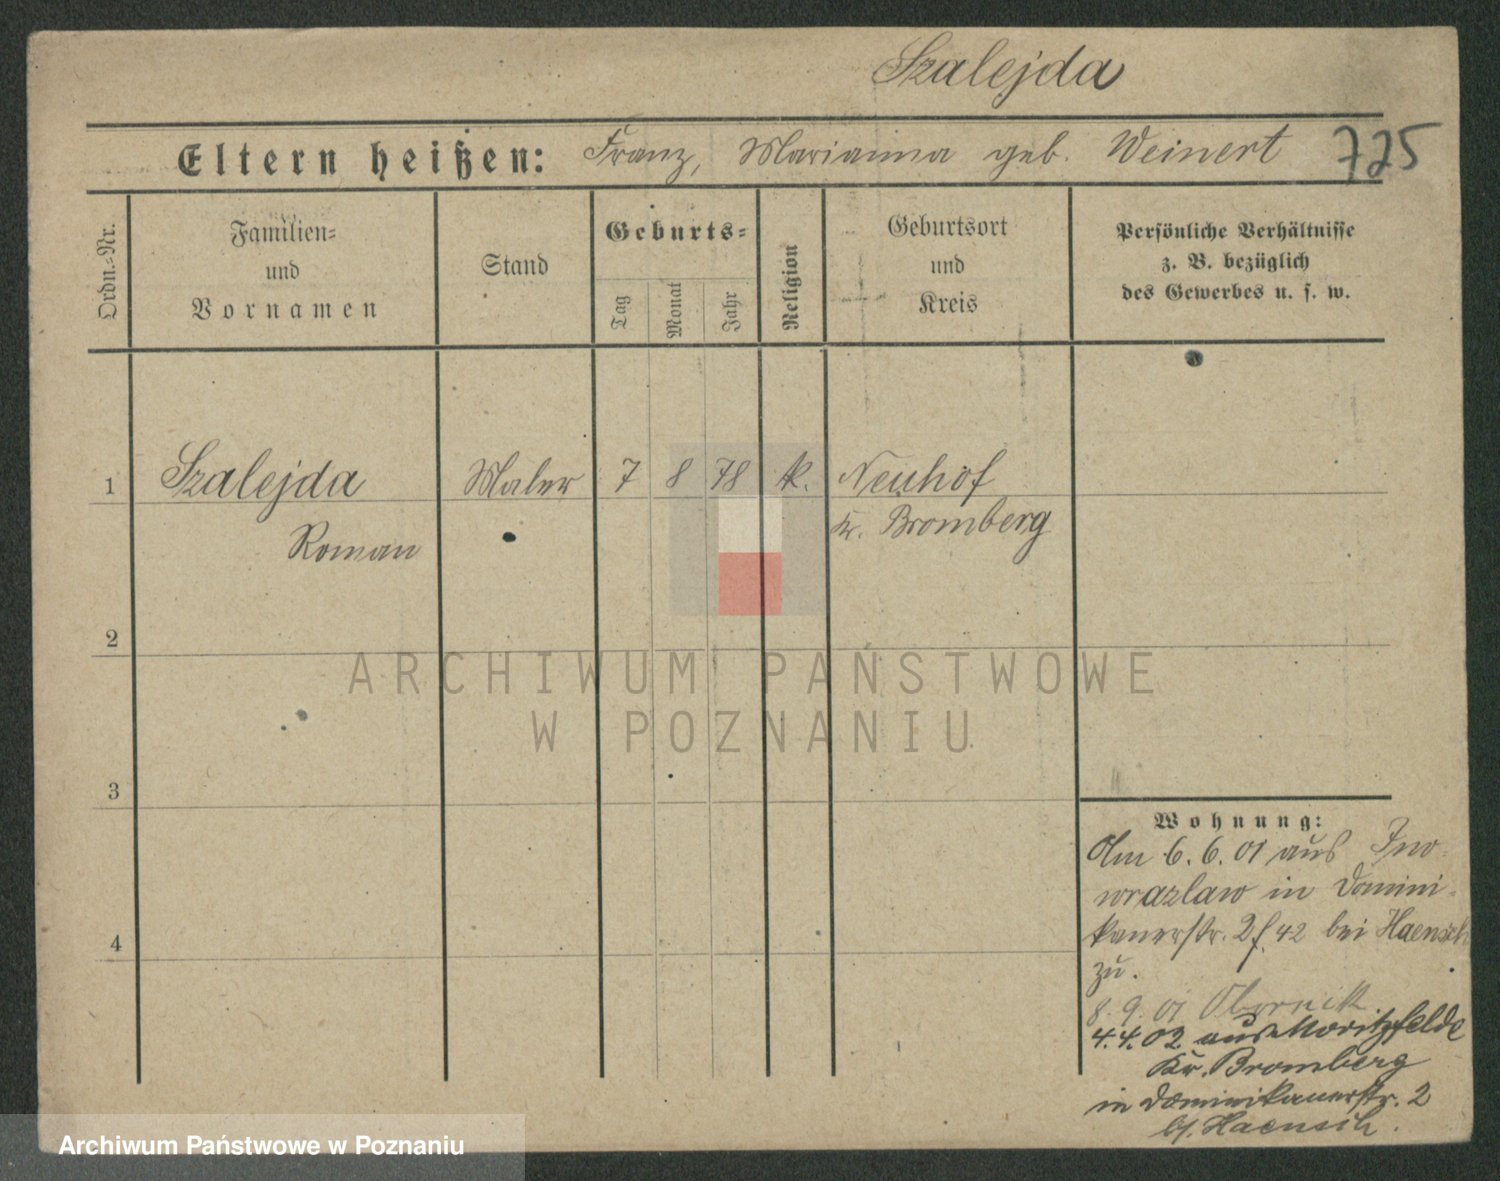 Szalejda
Eltern heißen: Franz, Marianna geb. Weinert 725
Ordn.-Nr.
Familien-
und
Vornamen
Stand
Geburts-
Tag
Monat
Jahr
Religion
Geburtsort
und
Kreis
Persönliche Verhältnisse
z. B. bezüglich
des Gewerbes u. s. w.
1 Szalejda Maler 7 8 78 k. Neuhof
Roman Kr. Bromberg
2
3
4
ARCHIWUM PAŃSTWOWE
W POZNANIU
Wohnung:
Am 6.6.01 aus Ino-
wrazlaw in Domini-
kanerstr. 2 42 bei Haensch
zu.
8.9.01 Obornik
4.4.02 aus Moritzfelde
Kr. Bromberg
in Dominikanerstr. 2
b/. Haensch.
Archiwum Państwowe w Poznaniu